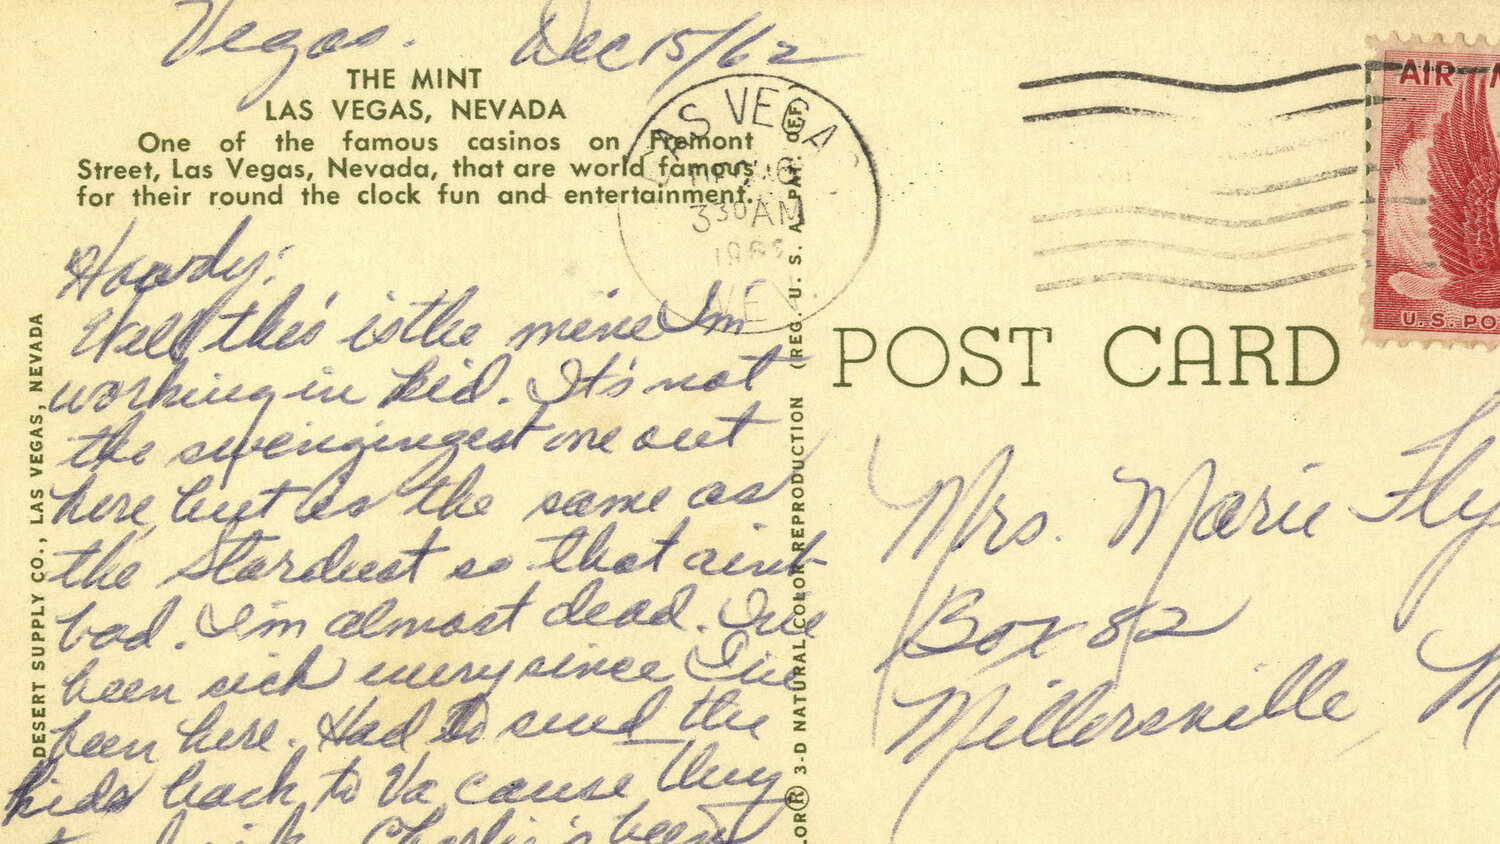 Vegas. Dec 15/62
THE MINT
LAS VEGAS, NEVADA
One of the famous casinos on Fremont
Street, Las Vegas, Nevada, that are world famous
for their round the clock fun and entertainment.
Howdy:
Well this is the mine I'm
working in kid. It's not
the swengingest one out
here, but is the same as
the Stardust so that aint
bad. I'm almost dead. I've
been sick every since I've
been here. Had to send the
kids back to Va cause they
Charlie's been
DESERT SUPPLY CO., LAS VEGAS, NEVADA
LAS VEGAS
330 AM
1962
NEV.
OR® 3-D NATURAL COLOR REPRODUCTION (REG. U. S. A. PAT. OFF.
AIR
U.S. PO
POST CARD
Mrs. Marie Fly
Box 82
Millersville, M